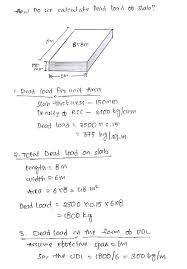 How Do we calculate Dead load of Slab?
8m
6m
150 mm
1. Dead load Per unit area
Slab thickness - 150mm
Density of RCC - 2500 kg/cum
Dead load = 2500 × 0.15
= 375 kg/sq.m
2. Total Dead load on slab
Length = 8m
width = 6m
Area = 6×8 = 48 m²
Dead load = 2500 × 0.15 × 6×8
= 1800 kg
3. Dead load in the form of UDL
Assume effective span = 6m
So, the UDL = 1800/6 = 300 kg/m